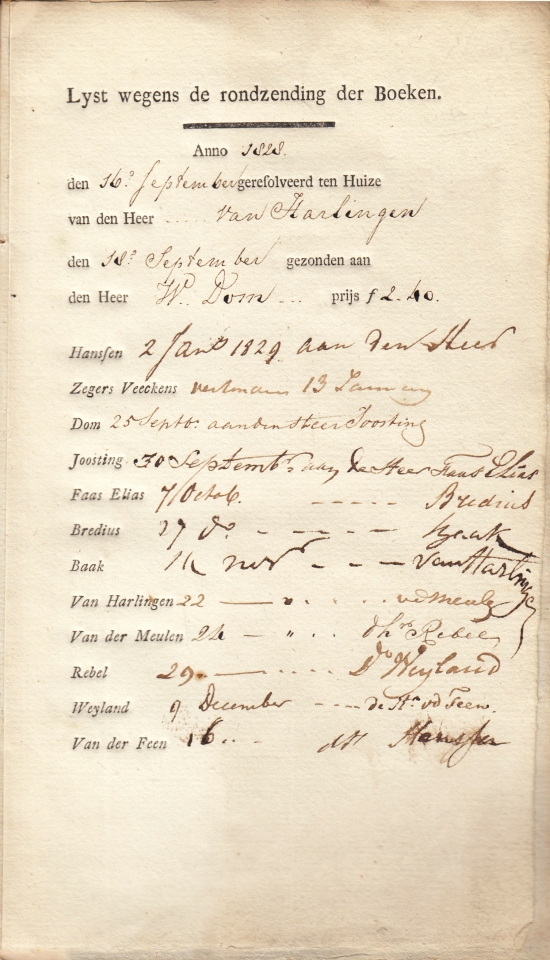 Lyst wegens de rondzending der Boeken.
Anno 1828.
den 16e September geresolveerd ten Huize
van den Heer ..... van Harlingen
den 18e September gezonden aan
den Heer W. Dom ... prijs f 2.40.
Hansſen 2 Jan 1829 aan den Heer
Zegers Veeckens 13
Dom 25 Septbr. aan den Heer Joosting
Joosting 30 Septembr aan de Heer Faas Elias
Faas Elias 7 Octob. ----- Bredius
Bredius 27 do. ----- Baak
Baak 14 nov --- van Harlingen
Van Harlingen 22 — " ... vd Meulen
Van der Meulen 24 — " ... Rebel
Rebel 29 — .... Ds Weyland
Weyland 9 December ---- de Hr. vd Feen.
Van der Feen 16 .. - dH Hansſen